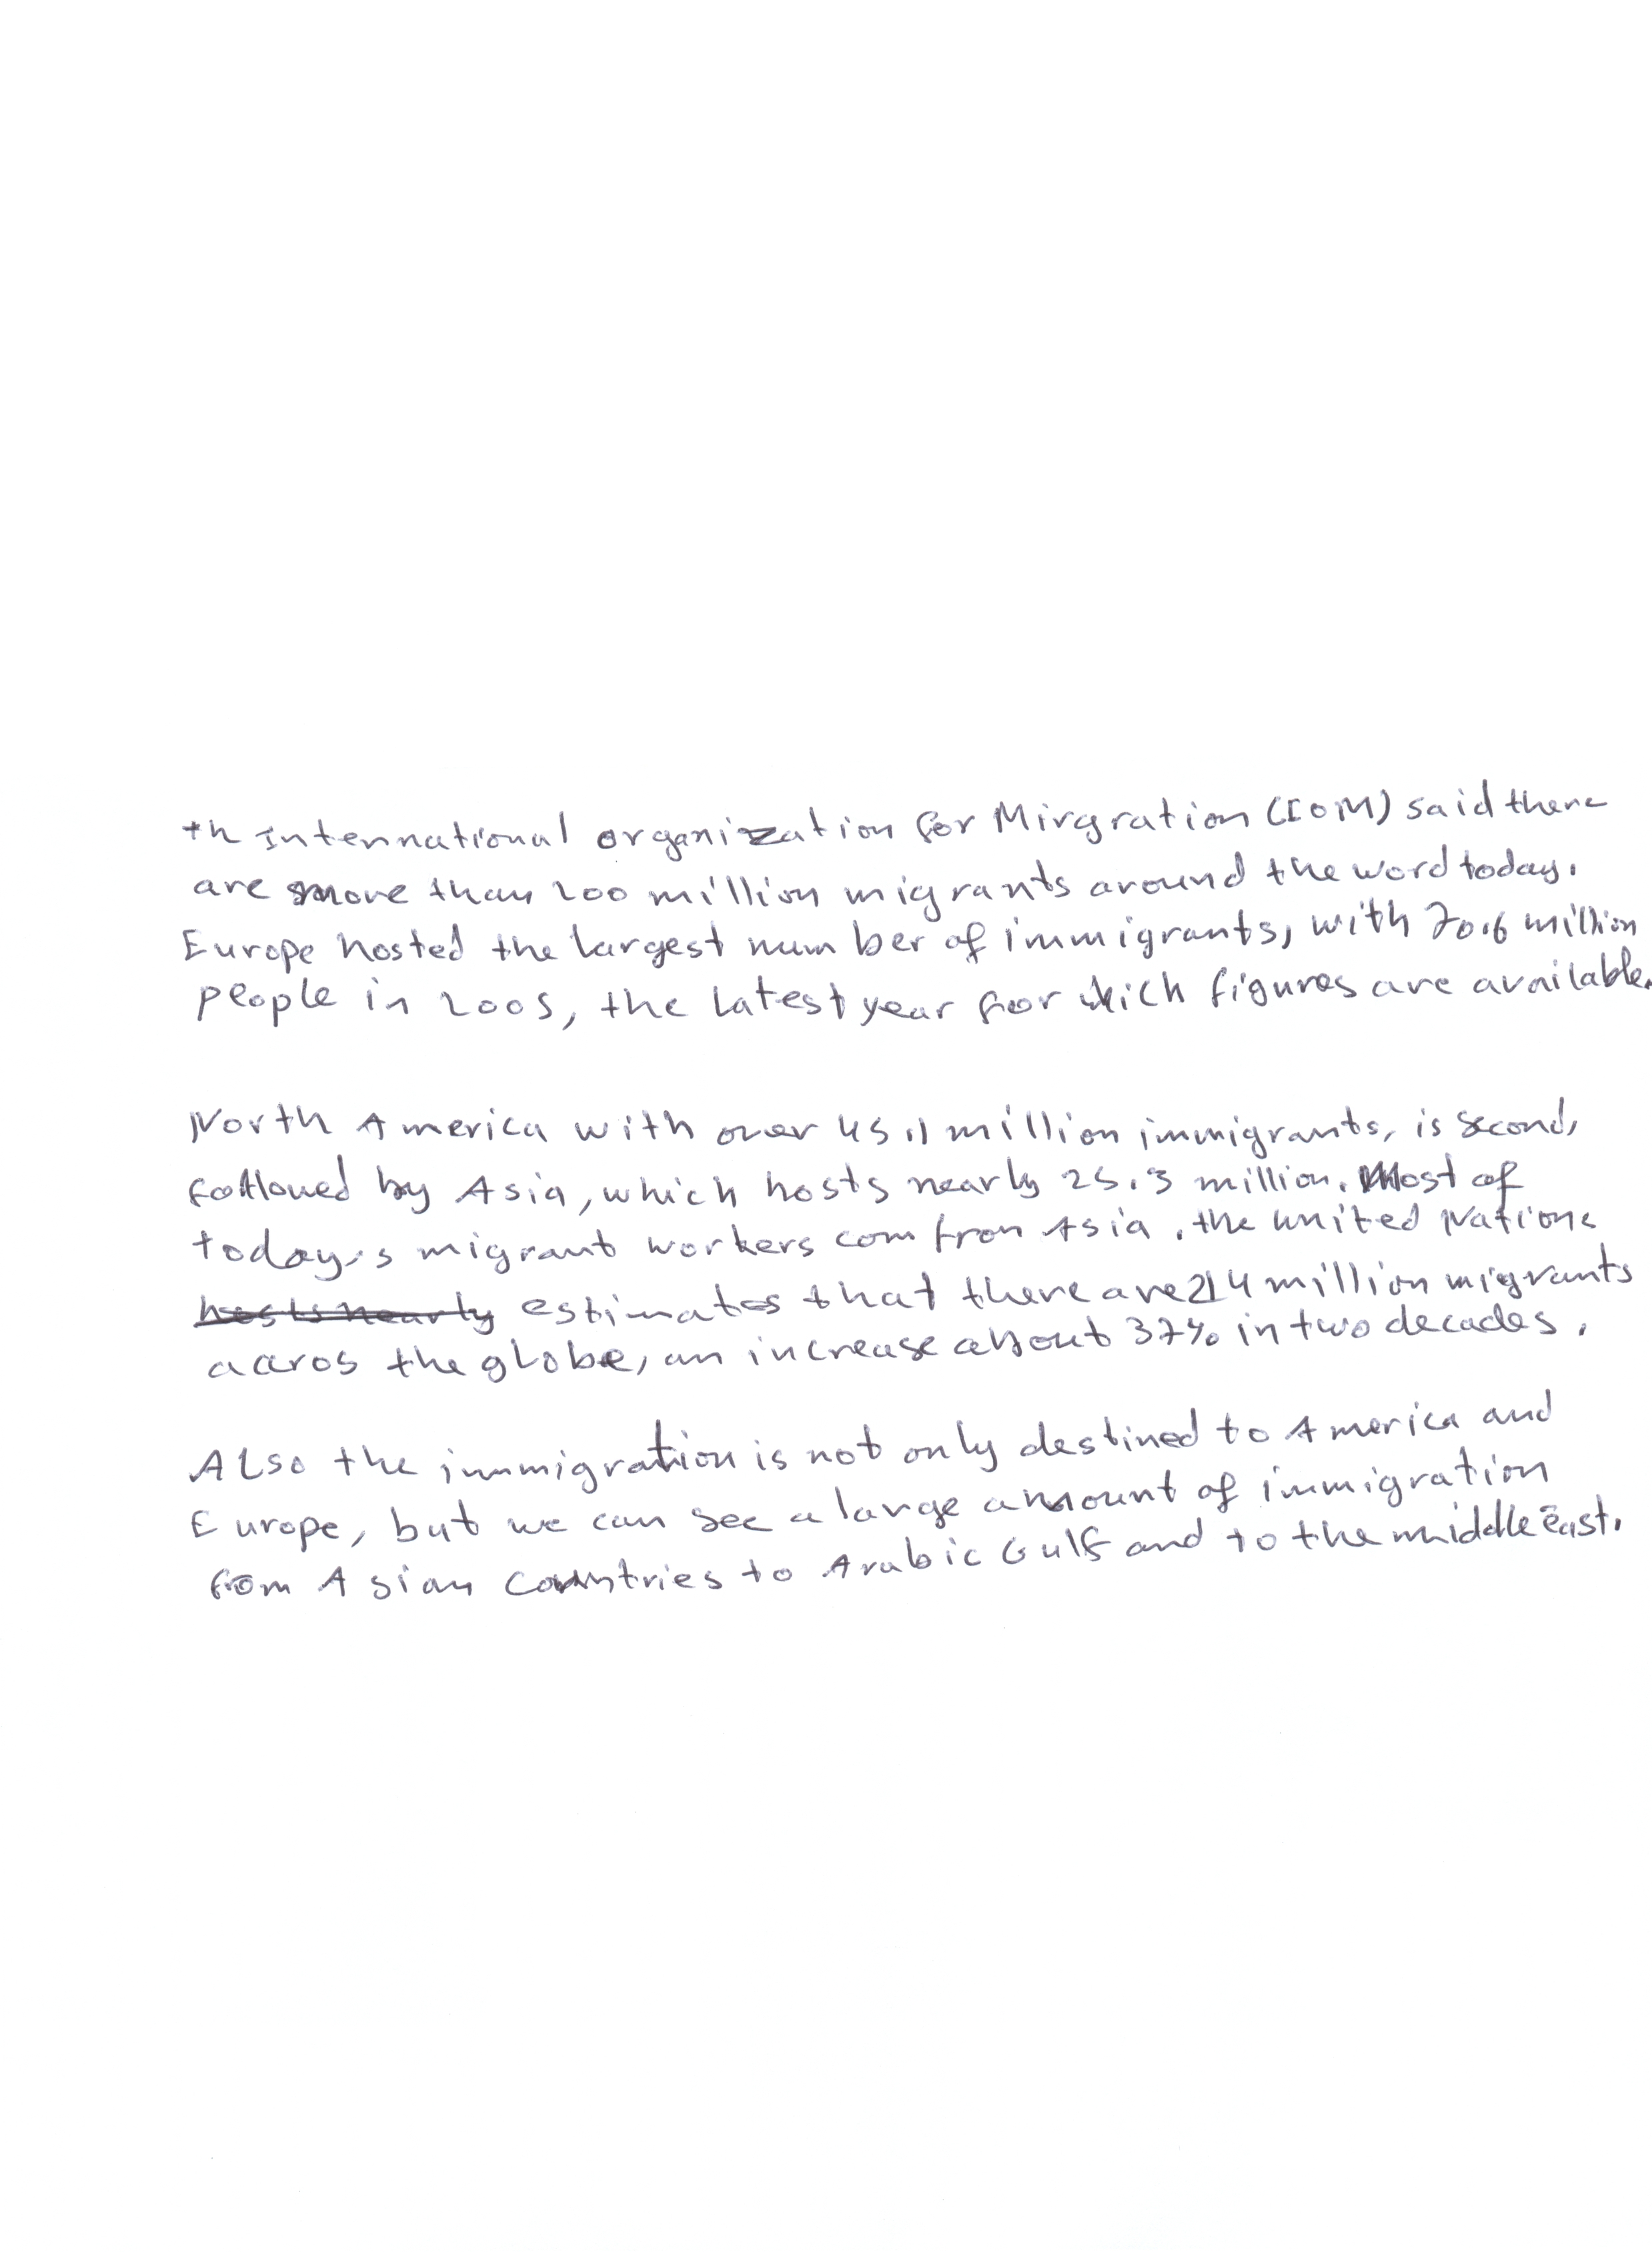 th International organization for Mirgration (IOM) said there
are more than 200 million migrants around the word today.
Europe hosted the largest number of immigrants, with 70.6 million
people in 2005, the latest year for which figures are available.
North America with over 45.1 million immigrants, is second,
followed by Asia, which hosts nearly 25.3 million. Most of
today's migrant workers com from Asia. the united Nations
hosts nearly estimates that there are 214 million migrants
accros the globe, an increase about 37% in two decades.
Also the immigration is not only destined to America and
Europe, but we can see a large amount of immigration
from Asian countries to Arabic Gulf and to the middle east.